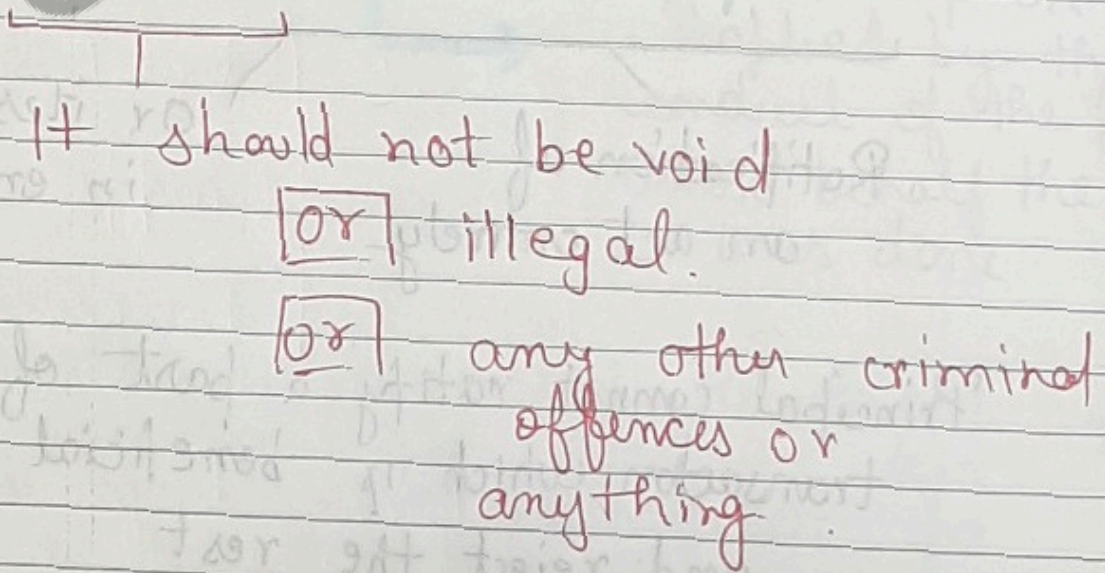 It should not be void
or illegal.
or any other criminal
offences or
anything.